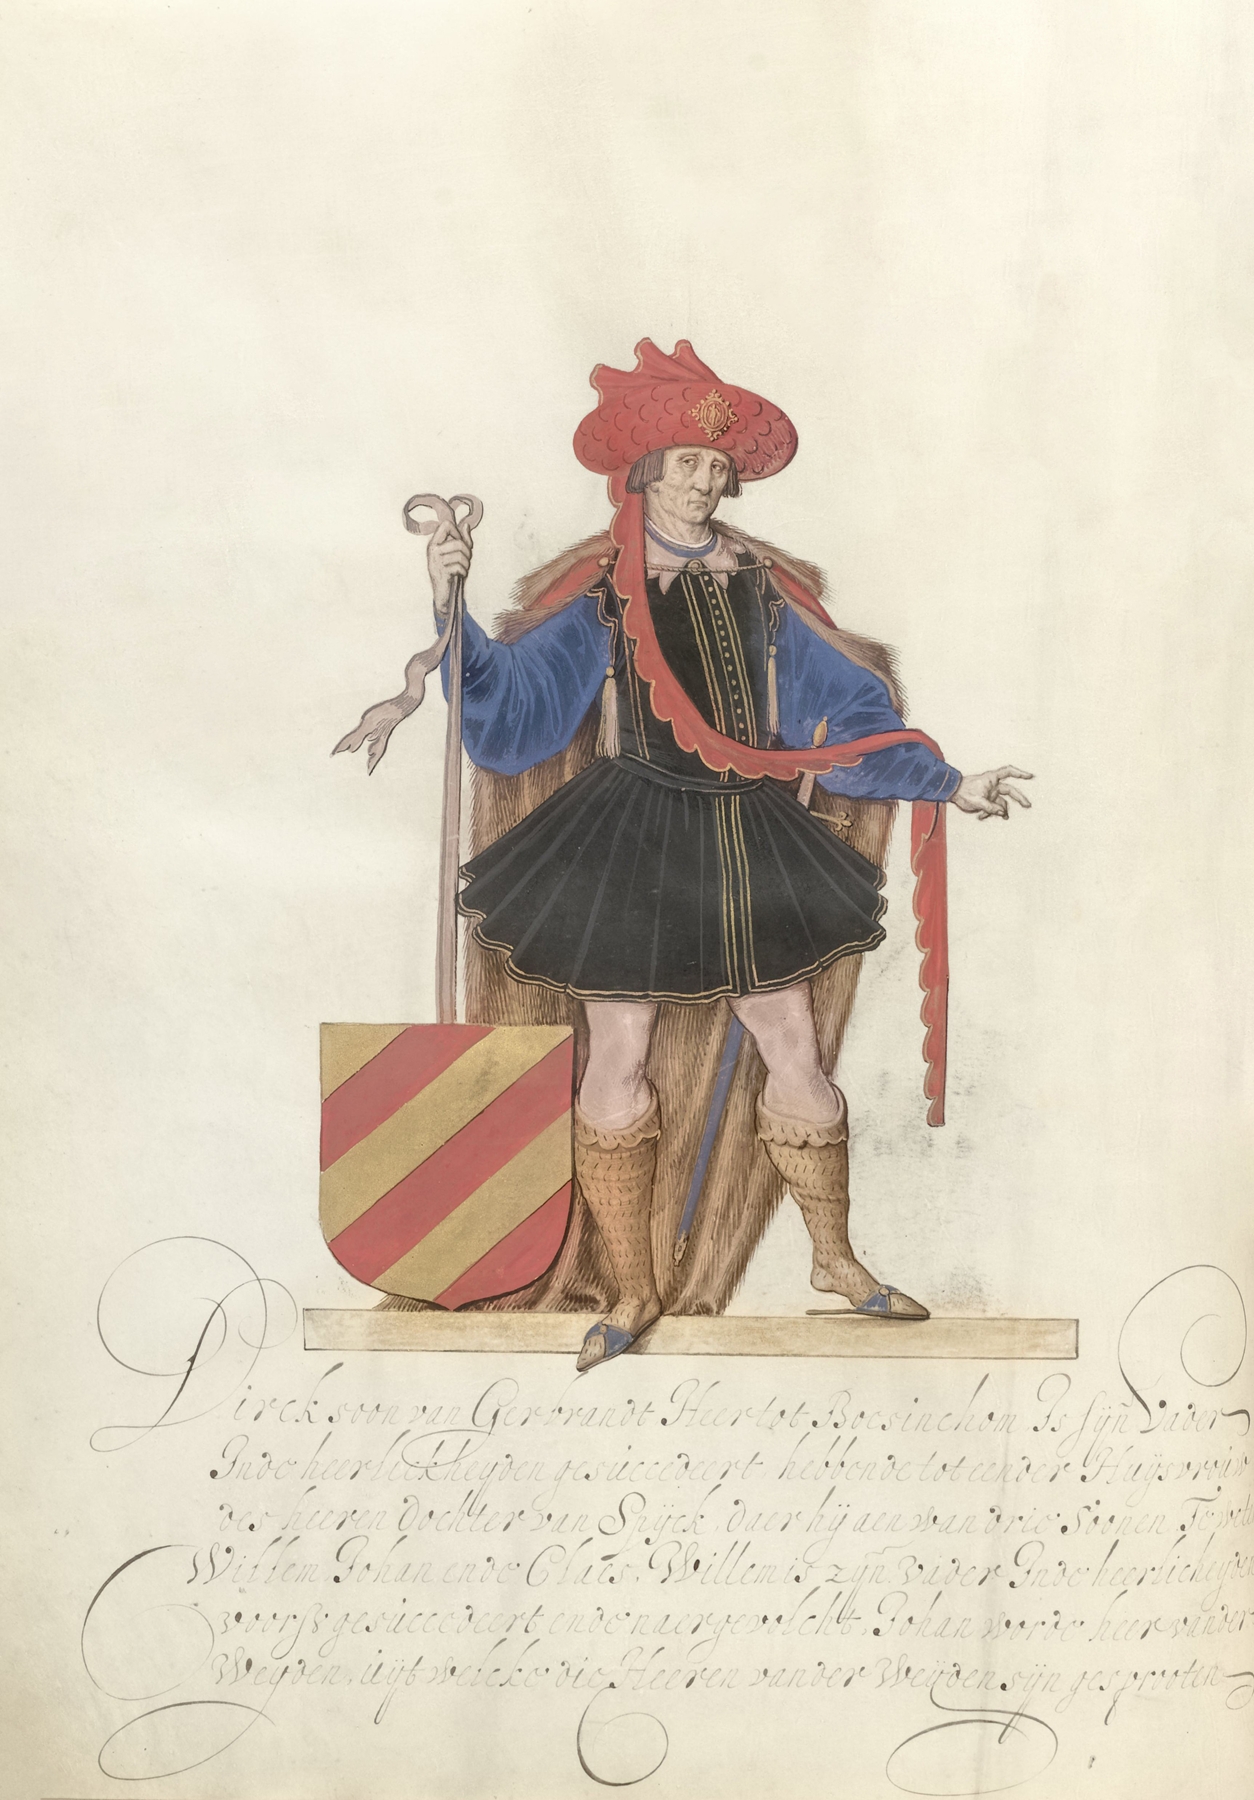 Dirck soon van Gerbrandt Heer tot Boesinchom Is sijn Vader
Inde heerlickheyden gesuccedeert, hebbende tot eender Huijsvrouw
des heeren Dochter van Spijck, daer hij aen wan drie Soonen
Willem Johan ende Claes. Willem is zijn Vader Inde heerlicheyden
voorß gesuccedeert, ende naergevolcht, Johan worde heer vander
Weyden, uijt welcke die Heeren vander Weijden sijn gesprooten